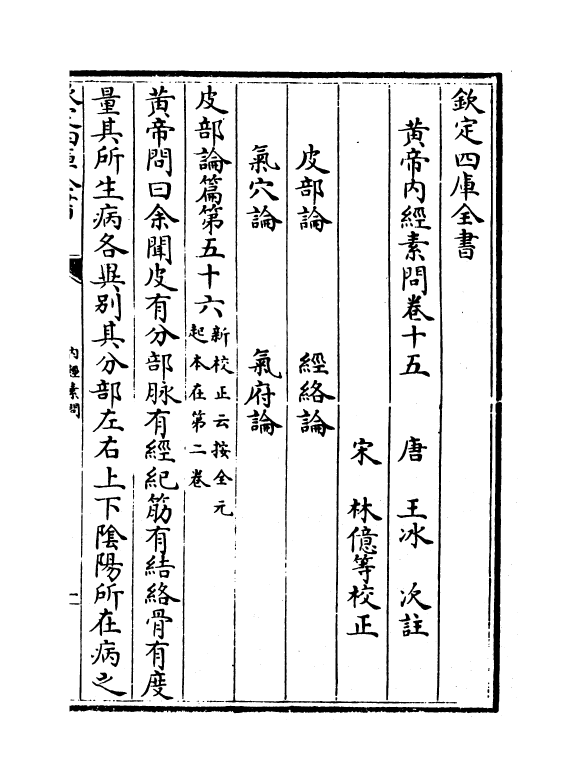 欽定四庫全書
黃帝內經素問卷十五　唐　王冰　次註
宋　林億等校正
皮部論　經絡論
氣穴論　氣府論
皮部論篇第五十六新校正云按全元起本在第二卷
黃帝問曰余聞皮有分部脉有經紀筋有結絡骨有度
量其所生病各異別其分部左右上下陰陽所在病之
內經素問